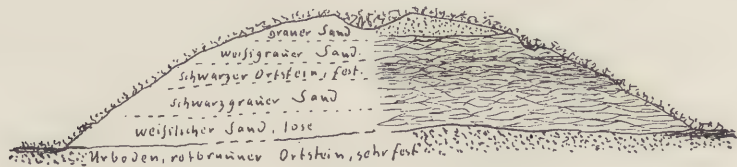 grauer Sand
weißgrauer Sand.
schwarzer Ortstein, fest.
schwarzgrauer Sand
weißlicher Sand, lose
Urboden, rotbrauner Ortstein, sehr fest